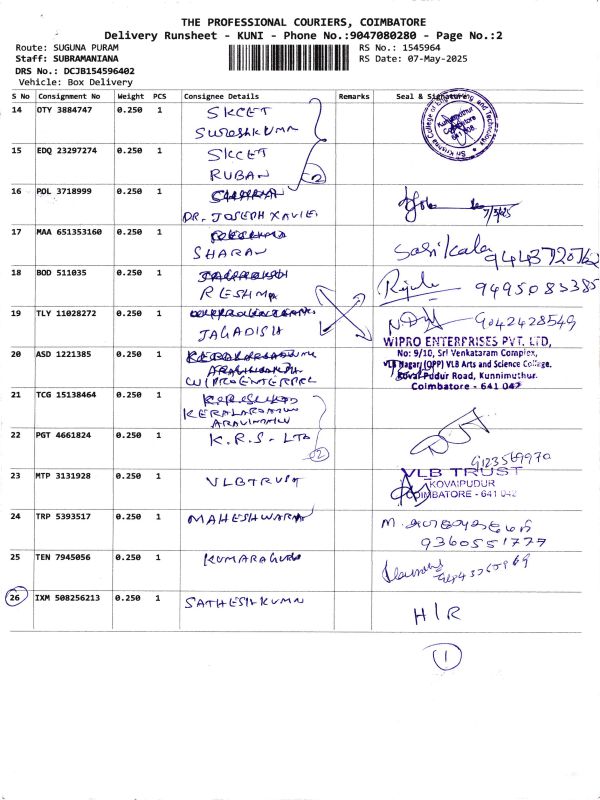 THE PROFESSIONAL COURIERS, COIMBATORE
Delivery Runsheet - KUNI - Phone No.:9047080280 - Page No.:2
Route: SUGUNA PURAM
RS No.: 1545964
Staff: SUBRAMANIANA
RS Date: 07-May-2025
DRS No.: DCJB154596402
Vehicle: Box Delivery
S No Consignment No Weight PCS Consignee Details Remarks Seal & Signature
14 OTY 3884747 0.250 1 SKCET
SURESHKUMAR
Sri Krishna College of Engineering and Technology
Kuniyamuthur
Coimbatore
641 008.
15 EDQ 23297274 0.250 1 SKCET
RUBAN
2
16 POL 3718999 0.250 1
DR. JOSEPH XAVIER
7/5/25
17 MAA 651353160 0.250 1
SHARAN
Sasikala
18 BOD 511035 0.250 1
RESHMA
9495083385
19 TLY 11028272 0.250 1
JAGADISH
9042428549
WIPRO ENTERPRISES PVT. LTD,
No: 9/10, Sri Venkataram Complex,
VLB Nagar, (OPP) VLB Arts and Science College,
Kovai Pudur Road, Kunnimuthur.
Coimbatore - 641 042
20 ASD 1221385 0.250 1
WIPRO ENTERPRI
21 TCG 15138464 0.250 1
22 PGT 4661824 0.250 1 K.R.S- LTD
2
23 MTP 3131928 0.250 1 VLB TRUST
VLB TRUST
KOVAIPUDUR
COIMBATORE - 641 042
24 TRP 5393517 0.250 1 MAHESHWARAN
9360551777
25 TEN 7945056 0.250 1 KUMARAGURU
26 IXM 508256213 0.250 1 SATHESHKUMAR
H/R
1